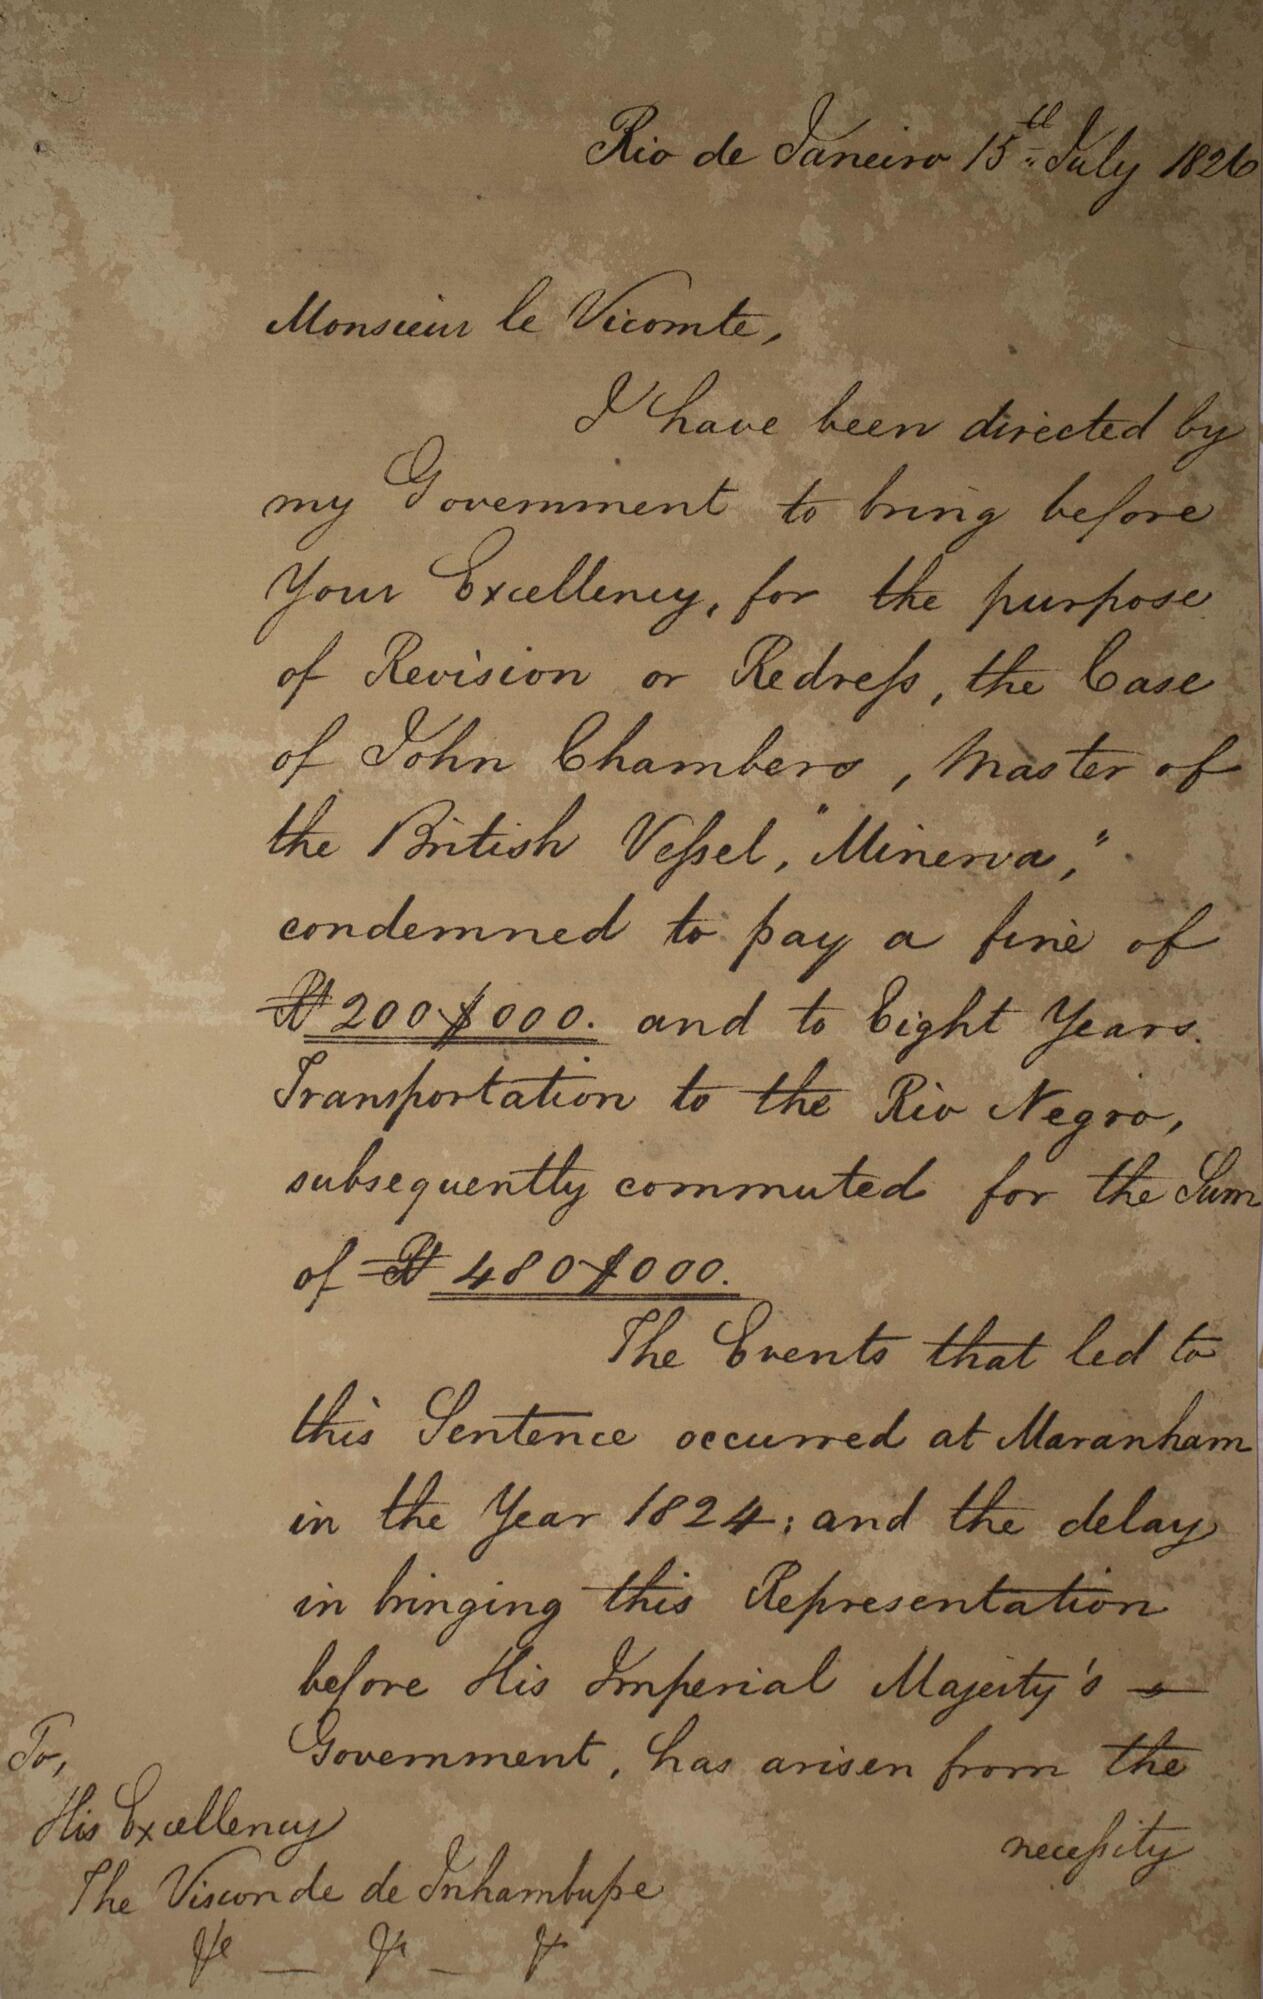 Rio de Janeiro 15th July 1826
Monsieur le Vicomte,
I have been directed by
my Government to bring before
Your Excellency, for the purpose
of Revision or Redreſs, the Case
of John Chambers, Master of
the British Veſsel, "Minerva,"
condemned to pay a fine of
Rs 200$000. and to Eight Years
Transportation to the Rio Negro,
subsequently commuted for the Sum
of Rs 480$000.
The Events that led to
this Sentence occurred at Maranham
in the Year 1824; and the delay
in bringing this Representation
before His Imperial Majesty's
Government, has arisen from the
neceſsity
To,
His Excellency
The Visconde de Inhambupe
&c — &c — &c